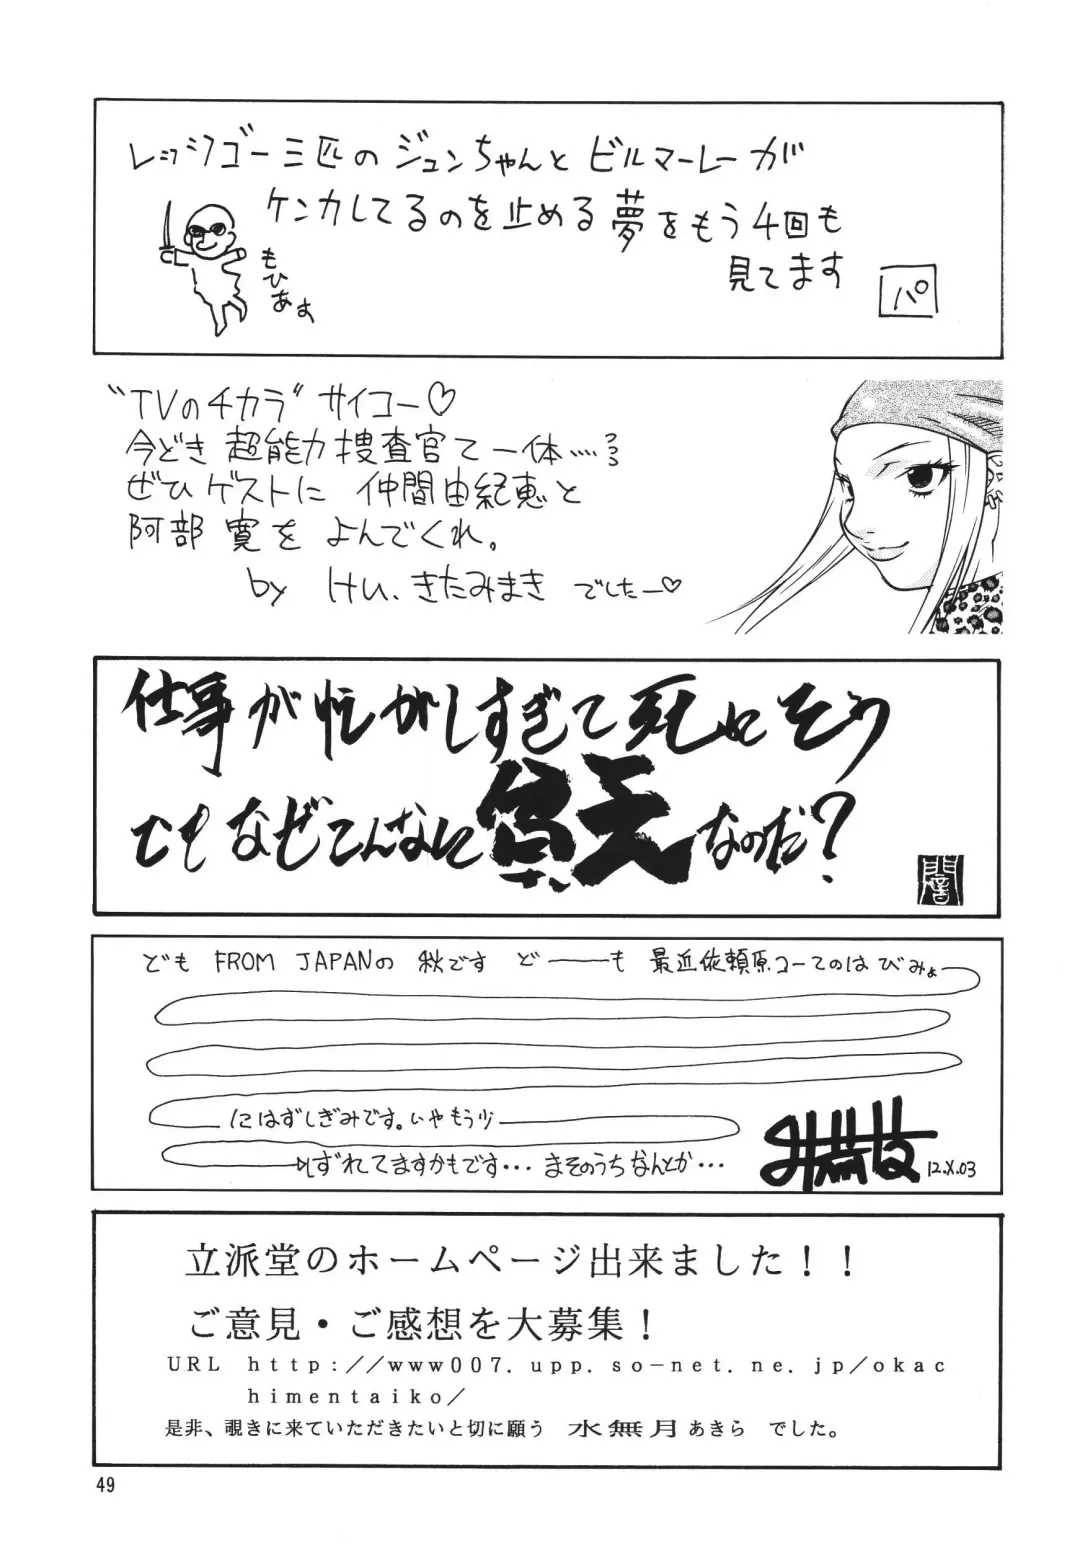 レッツゴー三匹のジュンちゃんとビルマーレーが
ケンカしてるのを止める夢をもう4回も
見てます
パ
もひあす
"TVのチカラ"サイコー♡
今どき 超能力捜査官て 一体……
ぜひ ゲストに 仲間由紀恵と
阿部 寛を よんでくれ。
by けい.きたみまき でしたー♡
仕事が忙がしすぎて死にそう
でもなぜこんなに貧乏なのだ?
闇
ども FROM JAPANの 秋です ど――も 最近依頼原コーてのは びみょ
にはずしぎみです。いやもう少
しずれてますかもです… まそのうちなんとか…
12.X.03
立派堂のホームページ出来ました!!
ご意見・ご感想を大募集!
URL http://www007.upp.so-net.ne.jp/okac
himentaiko/
是非、覗きに来ていただきたいと切に願う 水無月あきら でした。
49